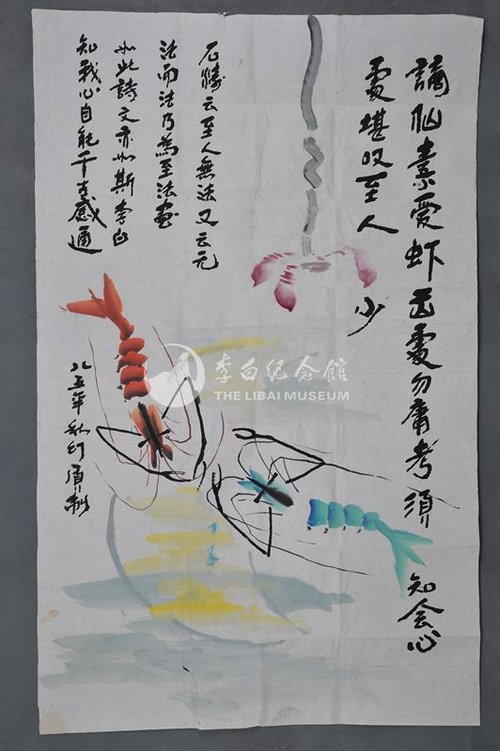 谪仙素爱虾至处勿庸考须
知会心
处堪叹至人
少
石涛云至人无法又云无
法而法乃为至法画
如此詩文亦如斯李白
知我心自能千古感通
八五年秋
李白纪念館
THE LIBAI MUSEUM